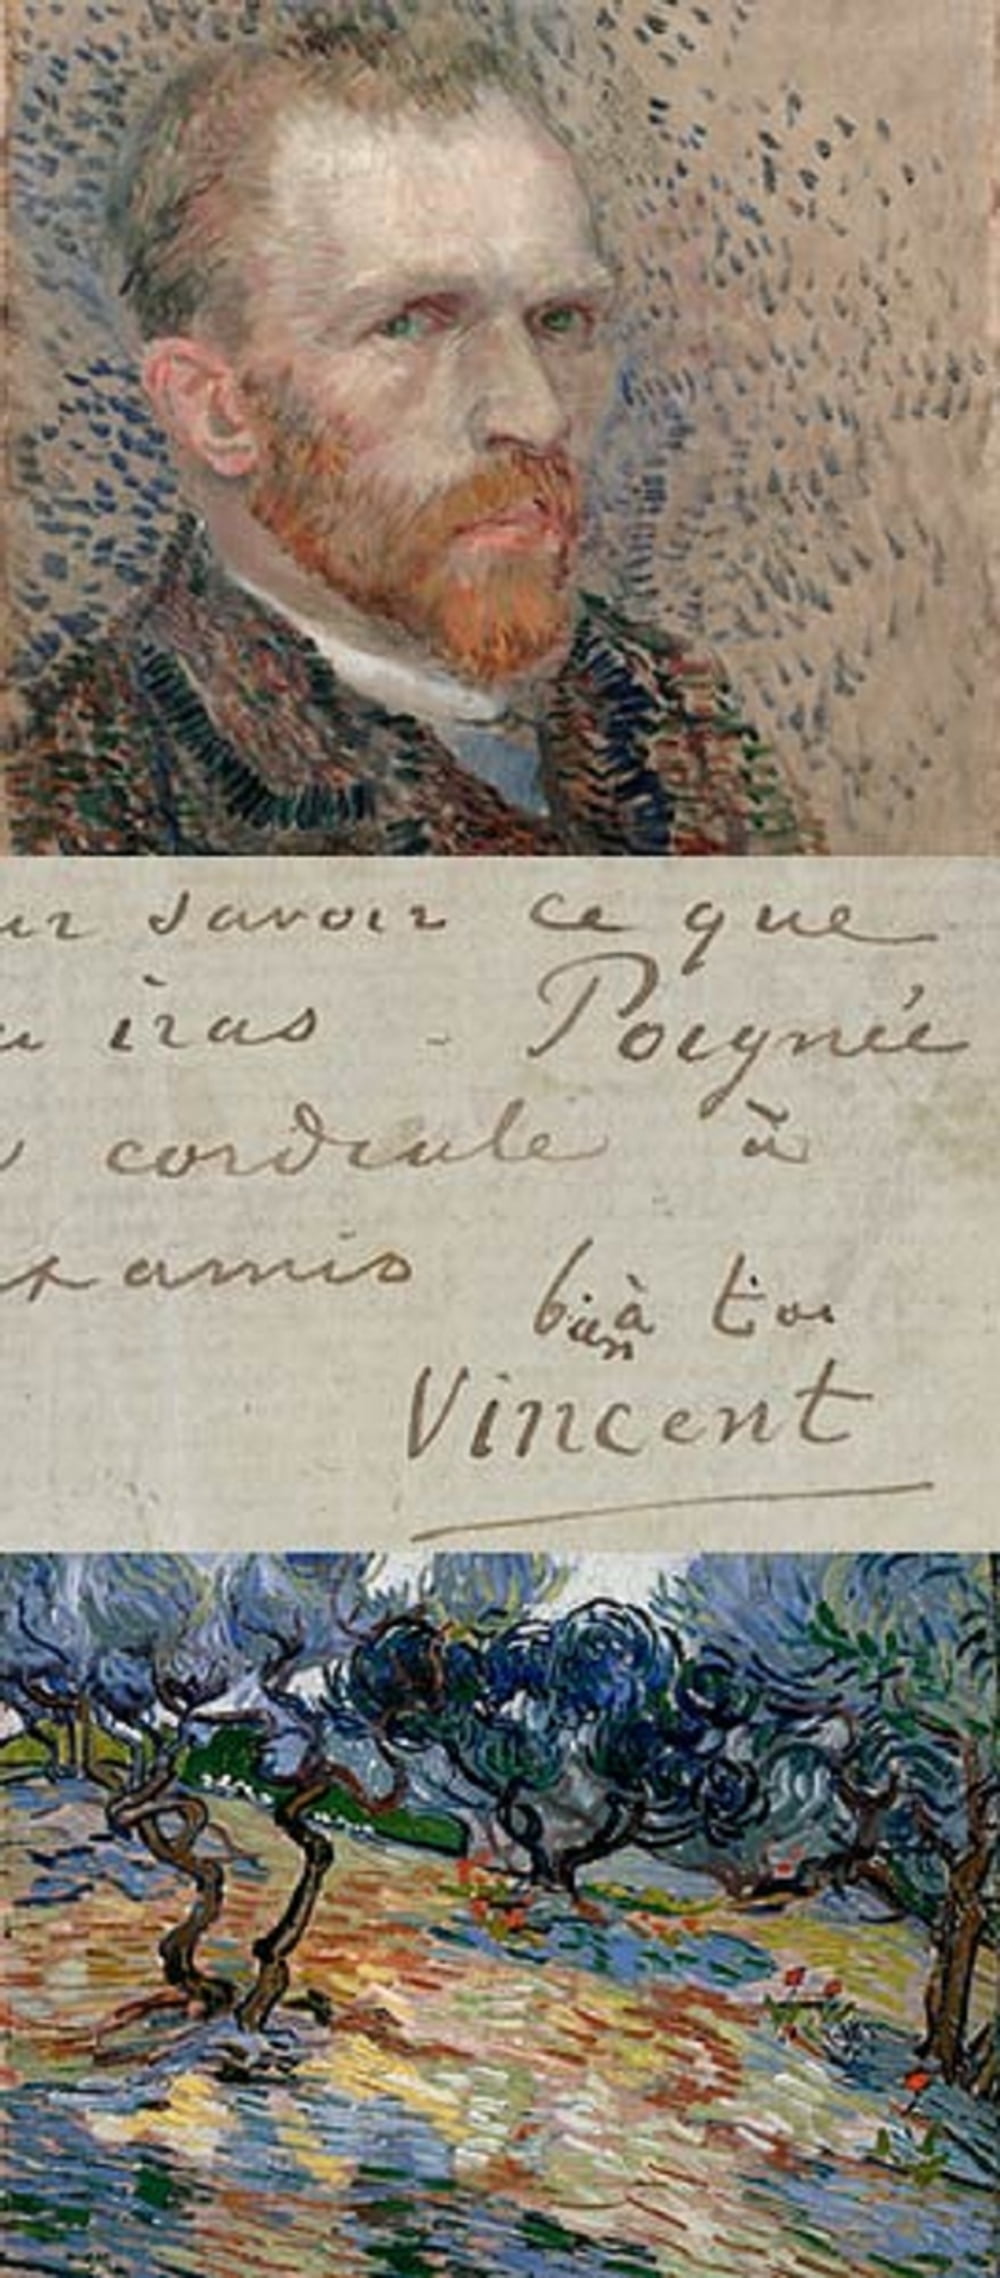 ur savoir ce que
u iras - Poignée
cordiale à
et amis
bien à toi
Vincent